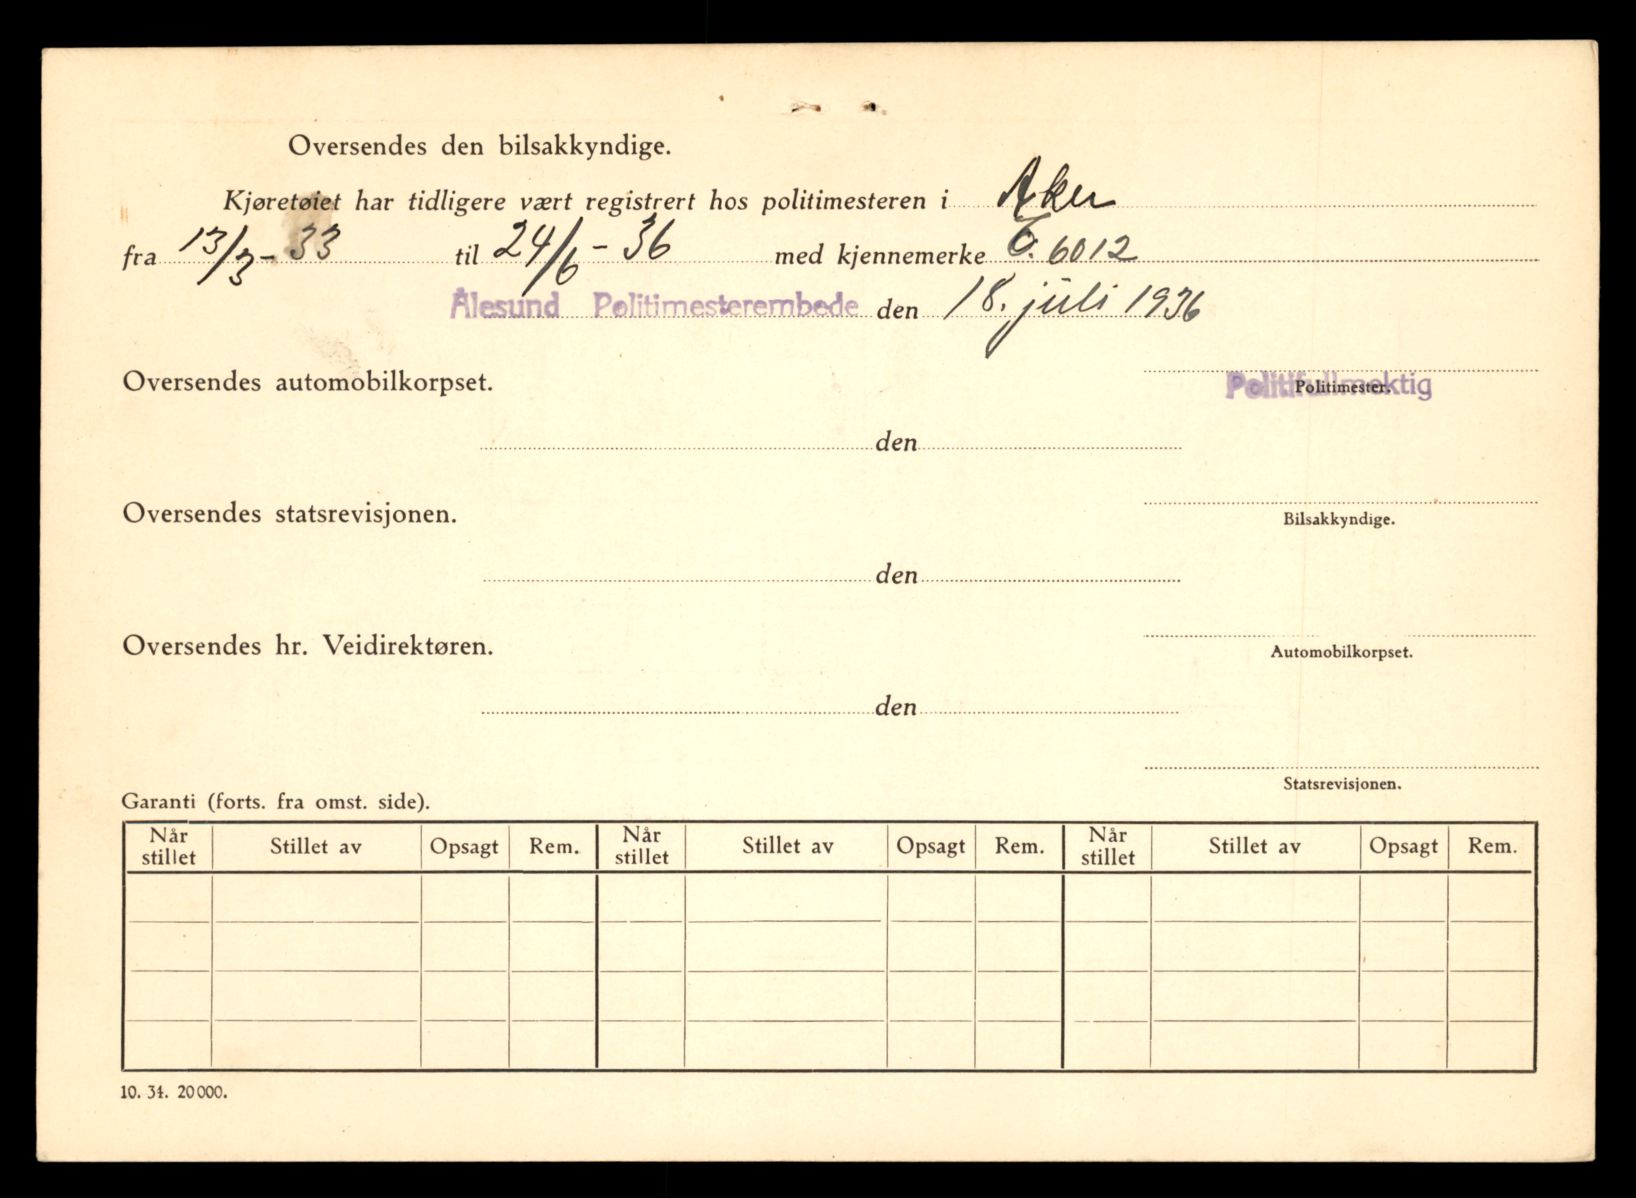 Oversendes den bilsakkyndige.
Kjøretøiet har tidligere vært registrert hos politimesteren i Aker
fra 13/3-33 til 24/6-36 med kjennemerke 6012
Ålesund Politimesterembede den 18. juli 1936
Oversendes automobilkorpset.
Politimester.
Politifullmektig
den
Oversendes statsrevisjonen.
Bilsakkyndige.
den
Oversendes hr. Veidirektøren.
Automobilkorpset.
den
Statsrevisjonen.
Garanti (forts. fra omst. side).
Når stillet Stillet av Opsagt Rem. Når stillet Stillet av Opsagt Rem. Når stillet Stillet av Opsagt Rem.
10. 34. 20000.